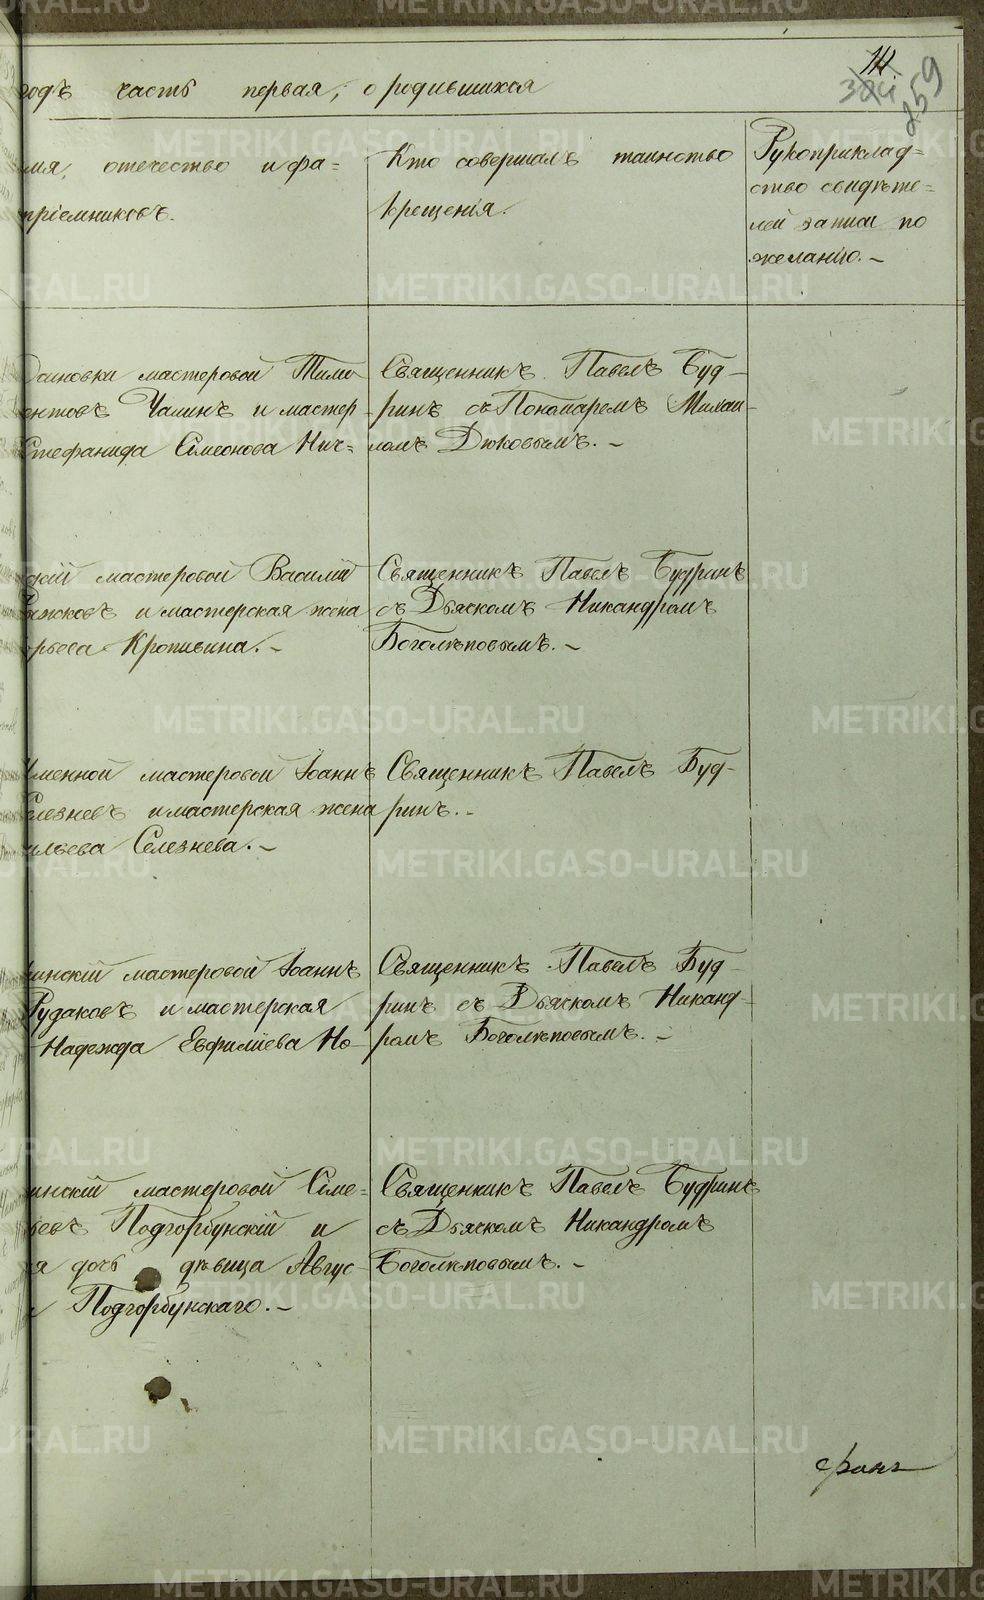 одъ часть первая, о родившихся
мя, отечество и фа=
пріемниковъ.
Кто совершалъ таинство
крещенія.
Рукоприклад=
ство свидѣте=
лей записи по
желанію. –
мастеровой Тимо-
ентовъ Чалинъ и мастер-
Стефанида Симеонова Нич=
Священникъ Павелъ Буд-
ринъ съ Пономаремъ Михаи-
ломъ Дюковымъ. –
скій мастеровой Василій
и мастерская жена
Кропивина. –
Священникъ Павелъ Будринъ
съ Дьячкомъ Никандромъ
Боголѣповымъ. –
менной мастеровой Іоаннъ
Селезневъ и мастерская жена
ильева Селезнева. –
Священникъ Павелъ Буд-
ринъ. –
инскій мастеровой Іоаннъ
Рудаковъ и мастерская
Надежда Евфиміева Но-
Священникъ Павелъ Буд-
ринъ съ Дьячкомъ Никанд-
ромъ Боголѣповымъ. –
инскій мастеровой Симе-
ьевъ Подгорбунскій и
я дочь дѣвица Авгус-
Подгорбунскаго. –
Священникъ Павелъ Будринъ
съ Дьячкомъ Никандромъ
Боголѣповымъ. –
259
METRIKI.GASO-URAL.RU